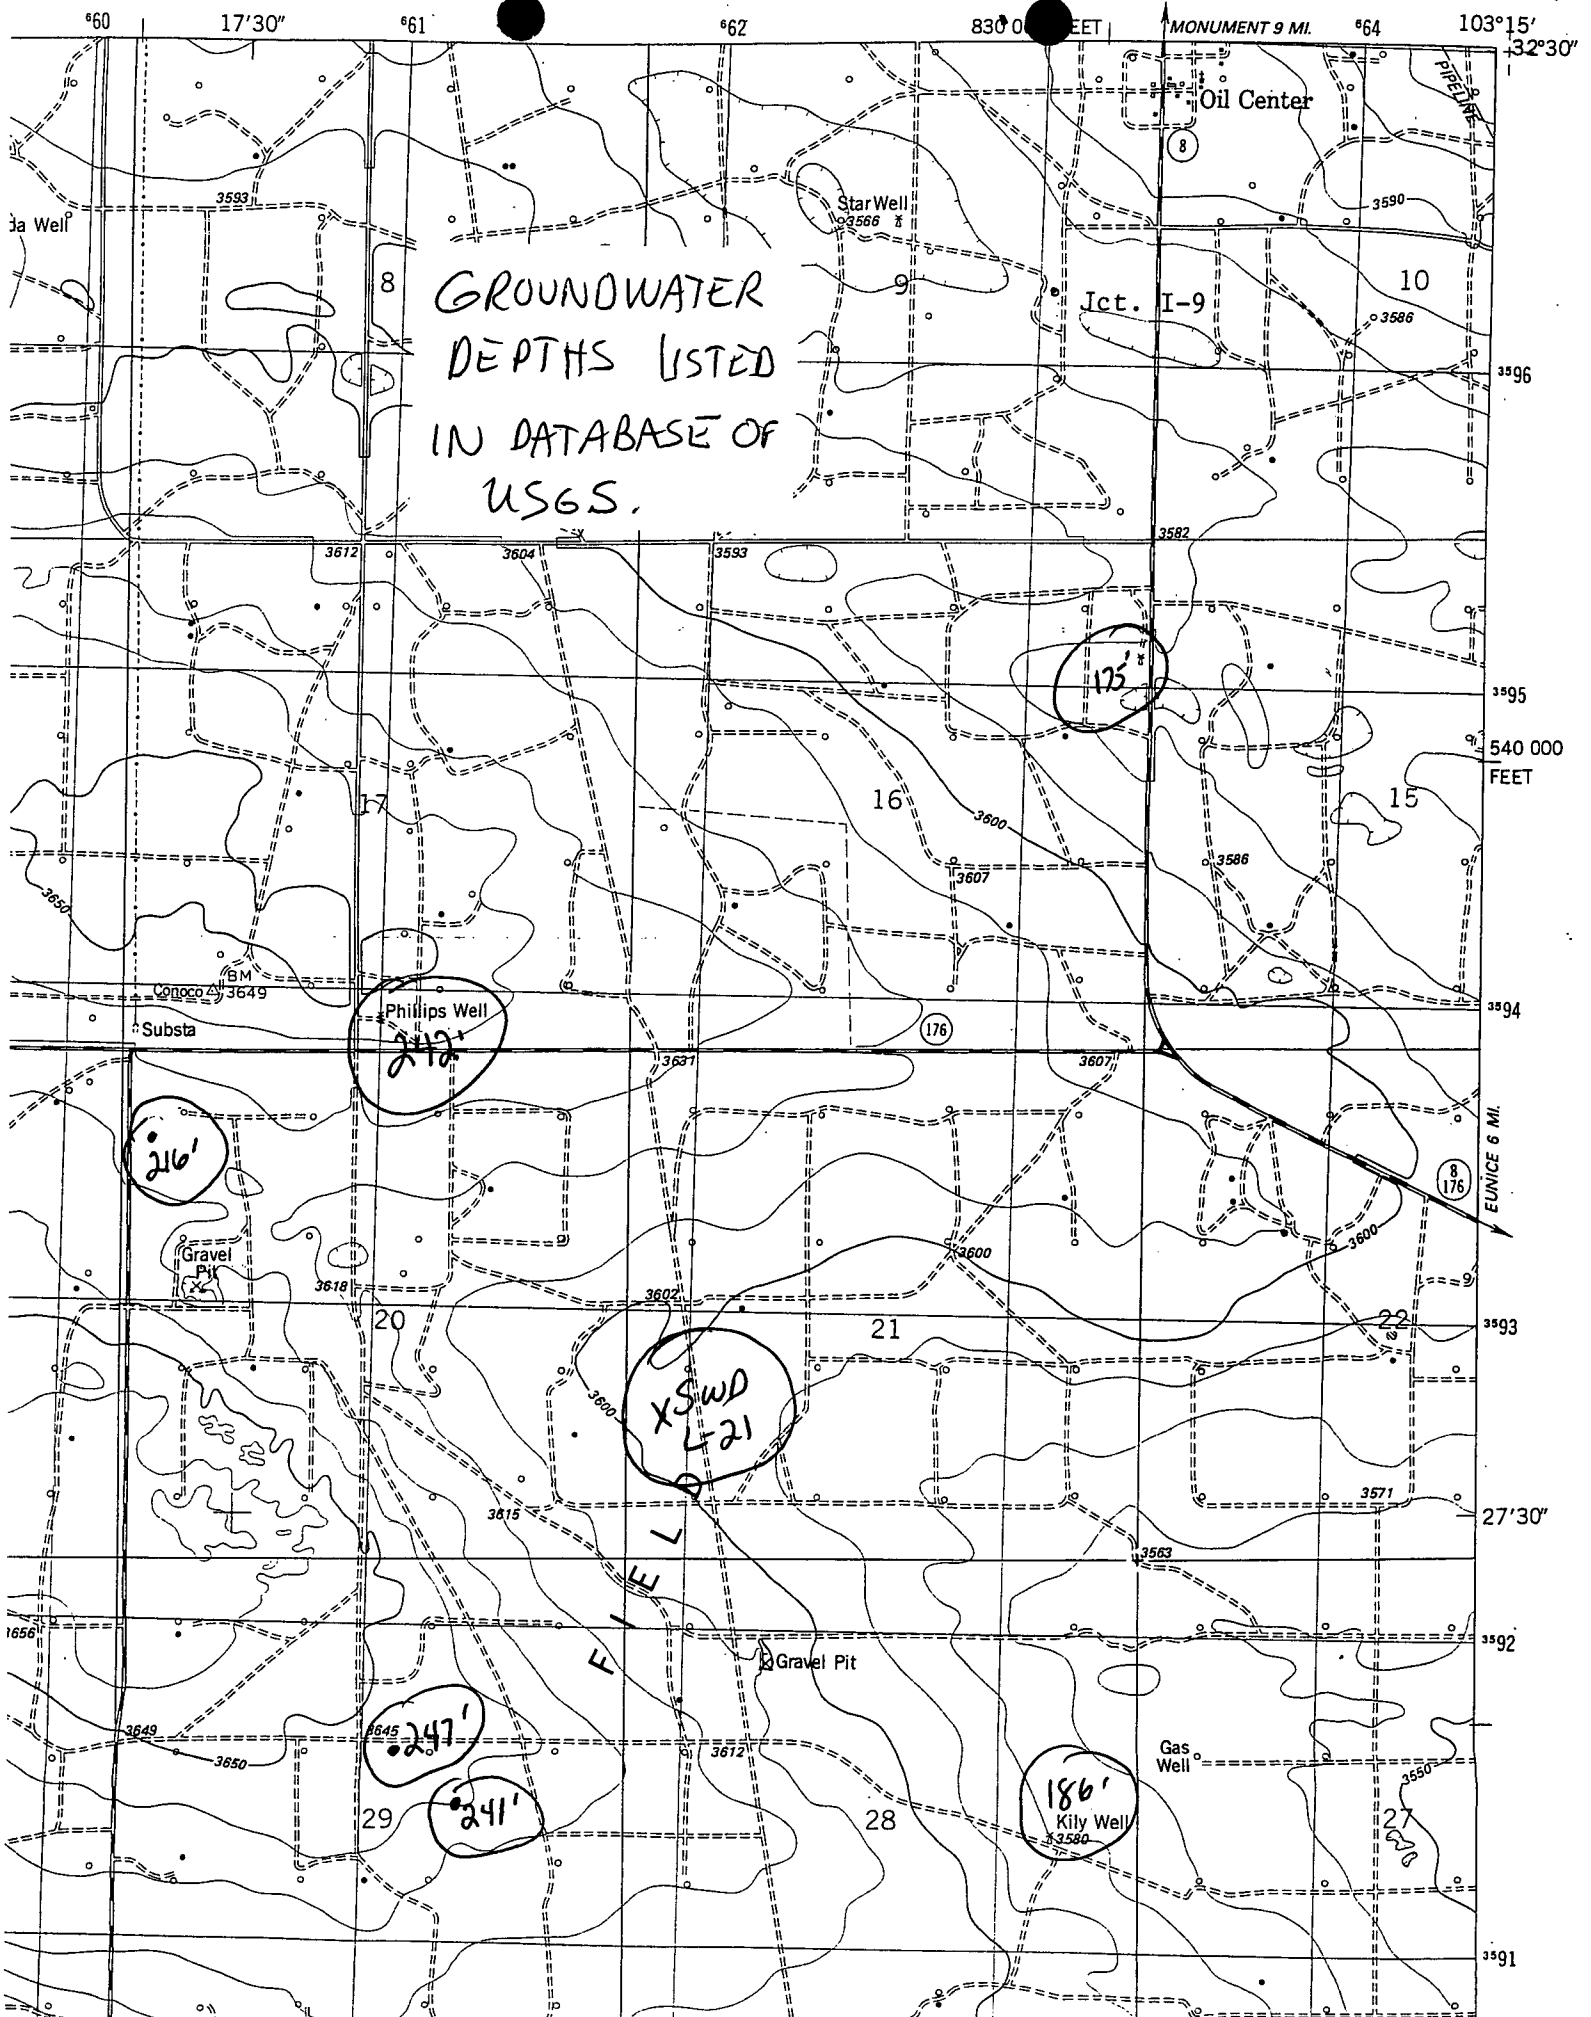 660 17'30" 661 662 830 0 EET MONUMENT 9 MI. 664 103°15'
32°30"
PIPELINE
Oil Center
8
3593
da Well
Star Well
3566
3590
8
9
10
GROUNDWATER
DEPTHS LISTED
IN DATABASE OF
USGS.
Jct. I-9
3586
3596
3612
3604
3593
3582
175'
3595
540 000
FEET
17
16
15
3600
3586
3607
3650
BM
Conoco 3649
Substa
Phillips Well
242'
176
3594
3631
3607
216'
EUNICE 6 MI.
8
176
Gravel
Pit
3600
3600
3618
3602
20
21
22
3593
9
X SWD
L-21
3600
3615
3571
27'30"
3563
FIELD
3656
3592
Gravel Pit
3649
3645
247'
3650
3612
Gas
Well
3550
241'
186'
Kily Well
3580
29
28
27
3591